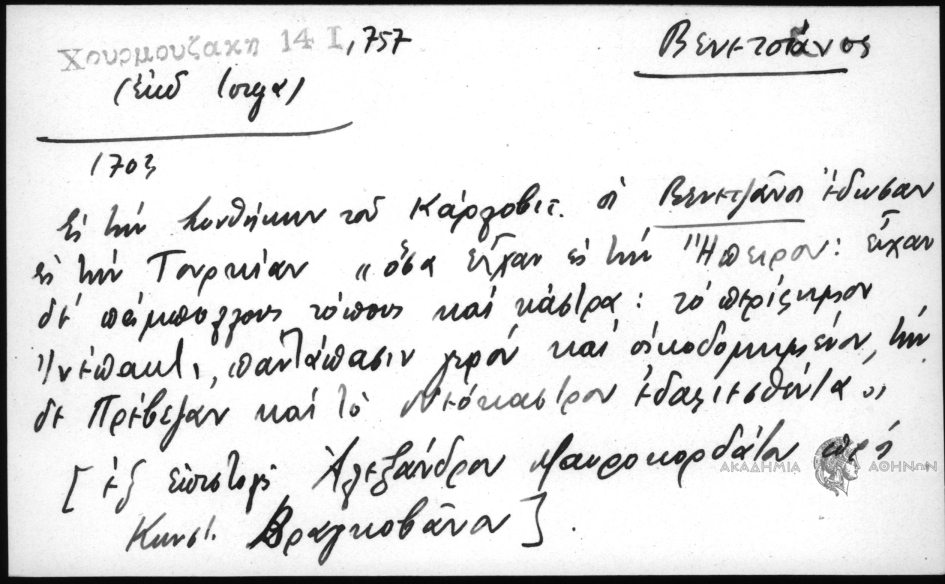 Χουρμουζακη 14 I, 757
Βενετσιάνος
(ἐκδ Ιοργα)
1703
Εἰς τὴν συνθήκην τοῦ Κάρλοβιτ. οἱ Βενετζᾶνοι ἔδωσαν
εἰς τὴν Τουρκίαν "ὅσα εἶχαν εἰς τὴν Ἤπειρον: εἶχαν
δὲ παμπόλλους τόπους καὶ κάστρα: τὸ περίφημον
Ἰνέπακτι, παντάπασιν γερόν καὶ οἰκοδομημένον, τὴν
δὲ Πρέβεζαν καὶ τὸ Νεόκαστρον ἐδαφισθέντα"
[ἐξ ἐπιστολῆς Ἀλεξάνδρου Μαυροκορδάτου πρὸς
Κωνστ. Βραγκοβᾶνον].
ΑΚΑΔΗΜΙΑ ΑΘΗΝΩΝ